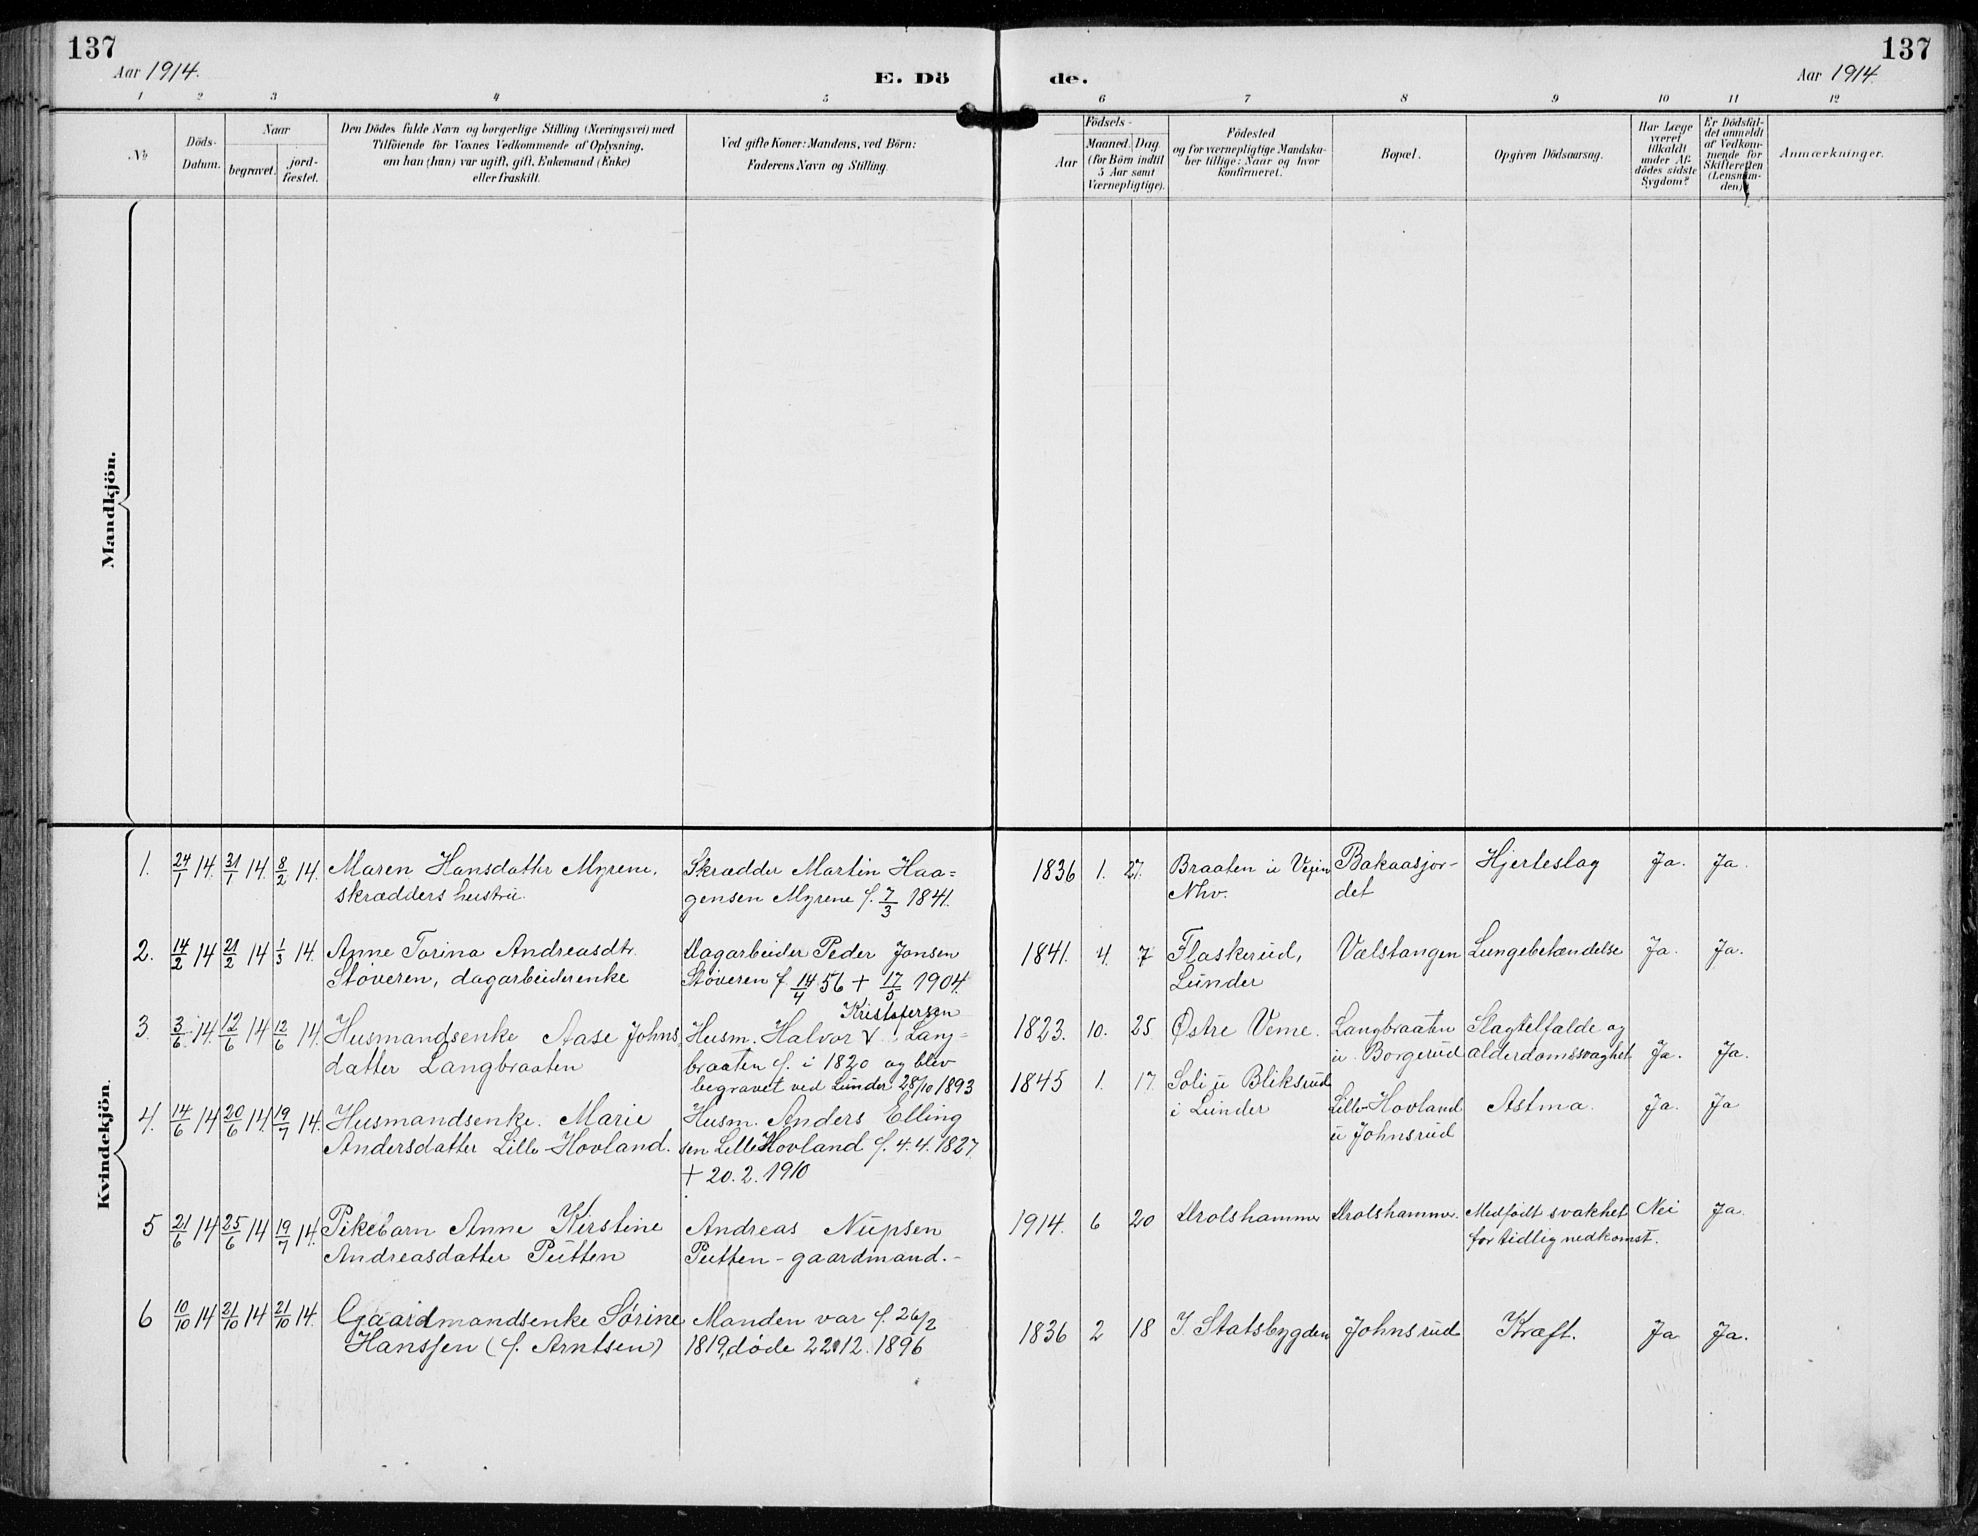 137
Aar 1914.
E. Dö
de.
Aar 1914.
137
1 2 3 4 5 6 7 8 9 10 11 12
No
Döds-
Datum.
Naar
begravet.
jord-
fæstet.
Den Dödes fulde Navn og borgerlige Stilling (Næringsvei) med
Tilföiende for Voxnes Vedkommende af Oplysning,
om han (hun) var ugift, gift, Enkemand (Enke)
eller fraskilt.
Ved gifte Koner: Mandens, ved Börn:
Faderens Navn og Stilling.
Födsels-
Aar
Maaned.
Dag.
(for Börn indtil
5 Aar samt
Værnepligtige).
Födested
og for værnepligtige Mandska-
ber tillige: Naar og hvor
konfirmeret.
Bopæl.
Opgiven Dödsaarsag.
Har Læge
været
tilkaldt
under Af-
dödes sidste
Sygdom?
Er Dödsfal-
det anmeldt
af Vedkom-
mende for
Skifteretten
(Lensman-
den)?
Anmærkninger.
Mandkjön.
Kvindekjön.
1. 24/1 14. 31/1 14. 8/2 14. Maren Hansdatter Myrene,
skrædders hustru.
Skrædder Martin Haa=
gensen Myrene f. 7/3 1841.
1836 1. 27. Braaten u Vejen
Nhv.
Bakaasjor-
det
Hjerteslag Ja. Ja.
2. 14/2 14 21/2 14 1/3 14. Anne Torina Andreasdtr.
Støveren, dagarbeiderenke
Dagarbeider Peder Jonsen
Støveren f 14/4 56 + 17/5 1904.
1841. 4. 7 Flaskerud,
Lunder
Vælstangen Lungebetændelse Ja. Ja.
3. 3/6 14. 12/6 14 12/6 14. Husmandsenke Aase Johns
datter Langbraaten
Kristofersen
Husm. Halvor V Lang=
braaten f. i 1820 og blev
begravet ved Lunder 28/10 1893
1823. 10. 25 Østre Veme.
Langbraaten
u. Borgerud
Slagtelfalde og
alderdomssvaghet Ja. Ja.
4. 14/6 14 20/6 14. 19/7 14. Husmandsenke. Marie
Andersdatter Lille-Hovland.
Husm. Anders Elling
sen Lille Hovland f. 4.4.1827
+ 20.2.1910
1845 1. 17. Soli u Bliksrud
i Lunder
Lille-Hovland
u Johnsrud
Astma. Ja. Ja
5 21/6 14 25/6 14 19/7 14. Pikebarn Anne Kirstine
Andreasdatter Putten
Andreas Nupsen
Putten - gaardmand.-
1914. 6 20 Drolshammer Drolshammer.
Medfødt svakhet
for tidlig nedkomst.
Nei Ja.
6 10/10 14 21/10 14 21/10 14. Gaardmandsenke Sørine
Hanssen (f. Arntsen)
Manden var f. 26/2
1819, døde 22.12.1896
1836 2 18 I Statsbygden Johnsrud Kræft. Ja Ja.